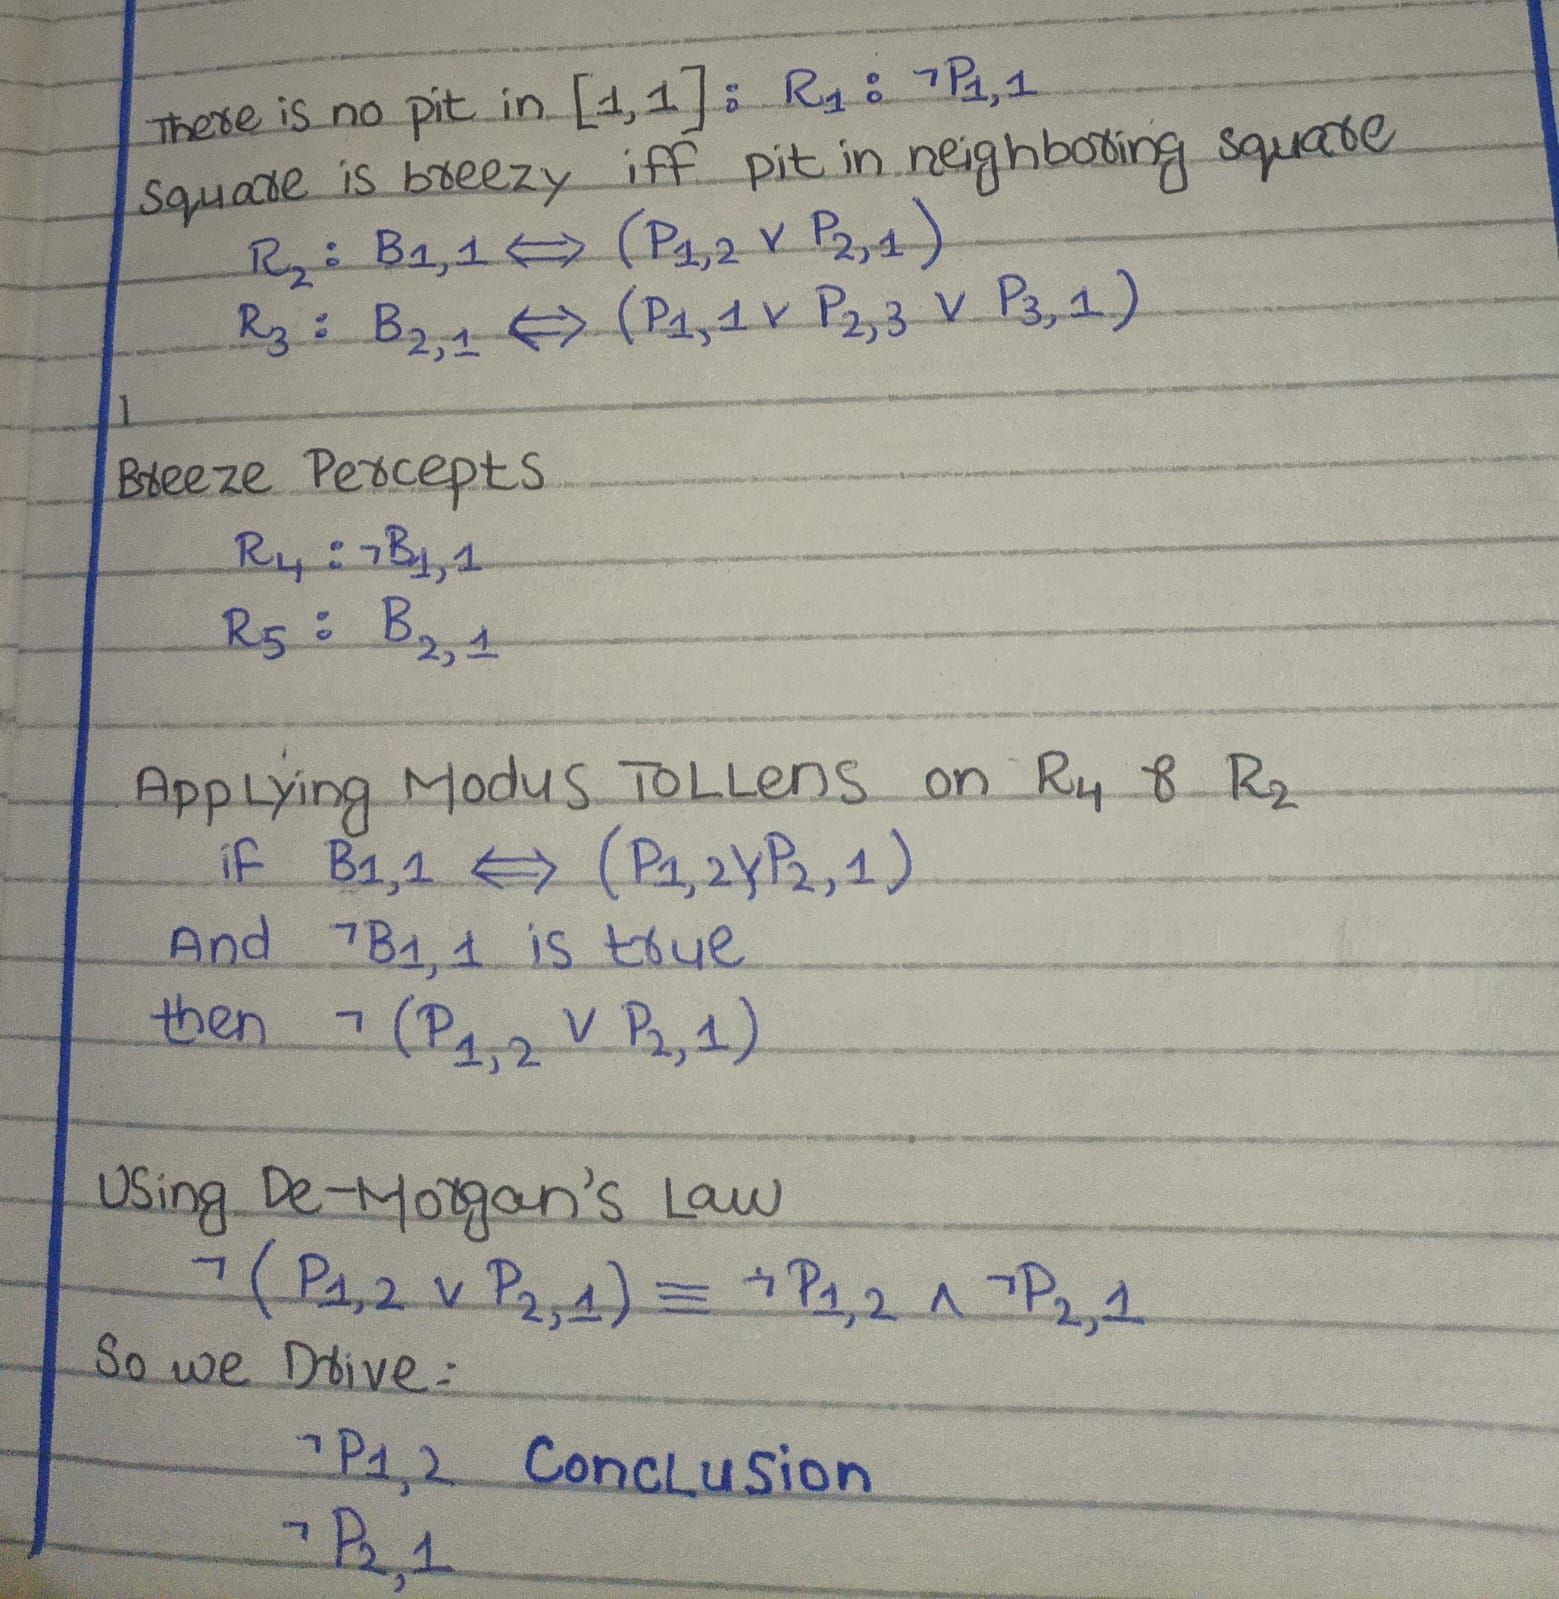 There is no pit in [1,1]: R₁: ¬P₁,₁
Square is breezy iff pit in neighboring square
R₂: B₁,₁ ⇔ (P₁,₂ ∨ P₂,₁)
R₃: B₂,₁ ⇔ (P₁,₁ ∨ P₂,₃ ∨ P₃,₁)
Breeze Percepts
R₄: ¬B₁,₁
R₅: B₂,₁
Applying Modus Tollens on R₄ & R₂
if B₁,₁ ⇔ (P₁,₂ ∨ P₂,₁)
And ¬B₁,₁ is true
then ¬(P₁,₂ ∨ P₂,₁)
Using De-Morgan's Law
¬(P₁,₂ ∨ P₂,₁) ≡ ¬P₁,₂ ∧ ¬P₂,₁
So we Drive:
¬P₁,₂ Conclusion
¬P₂,₁